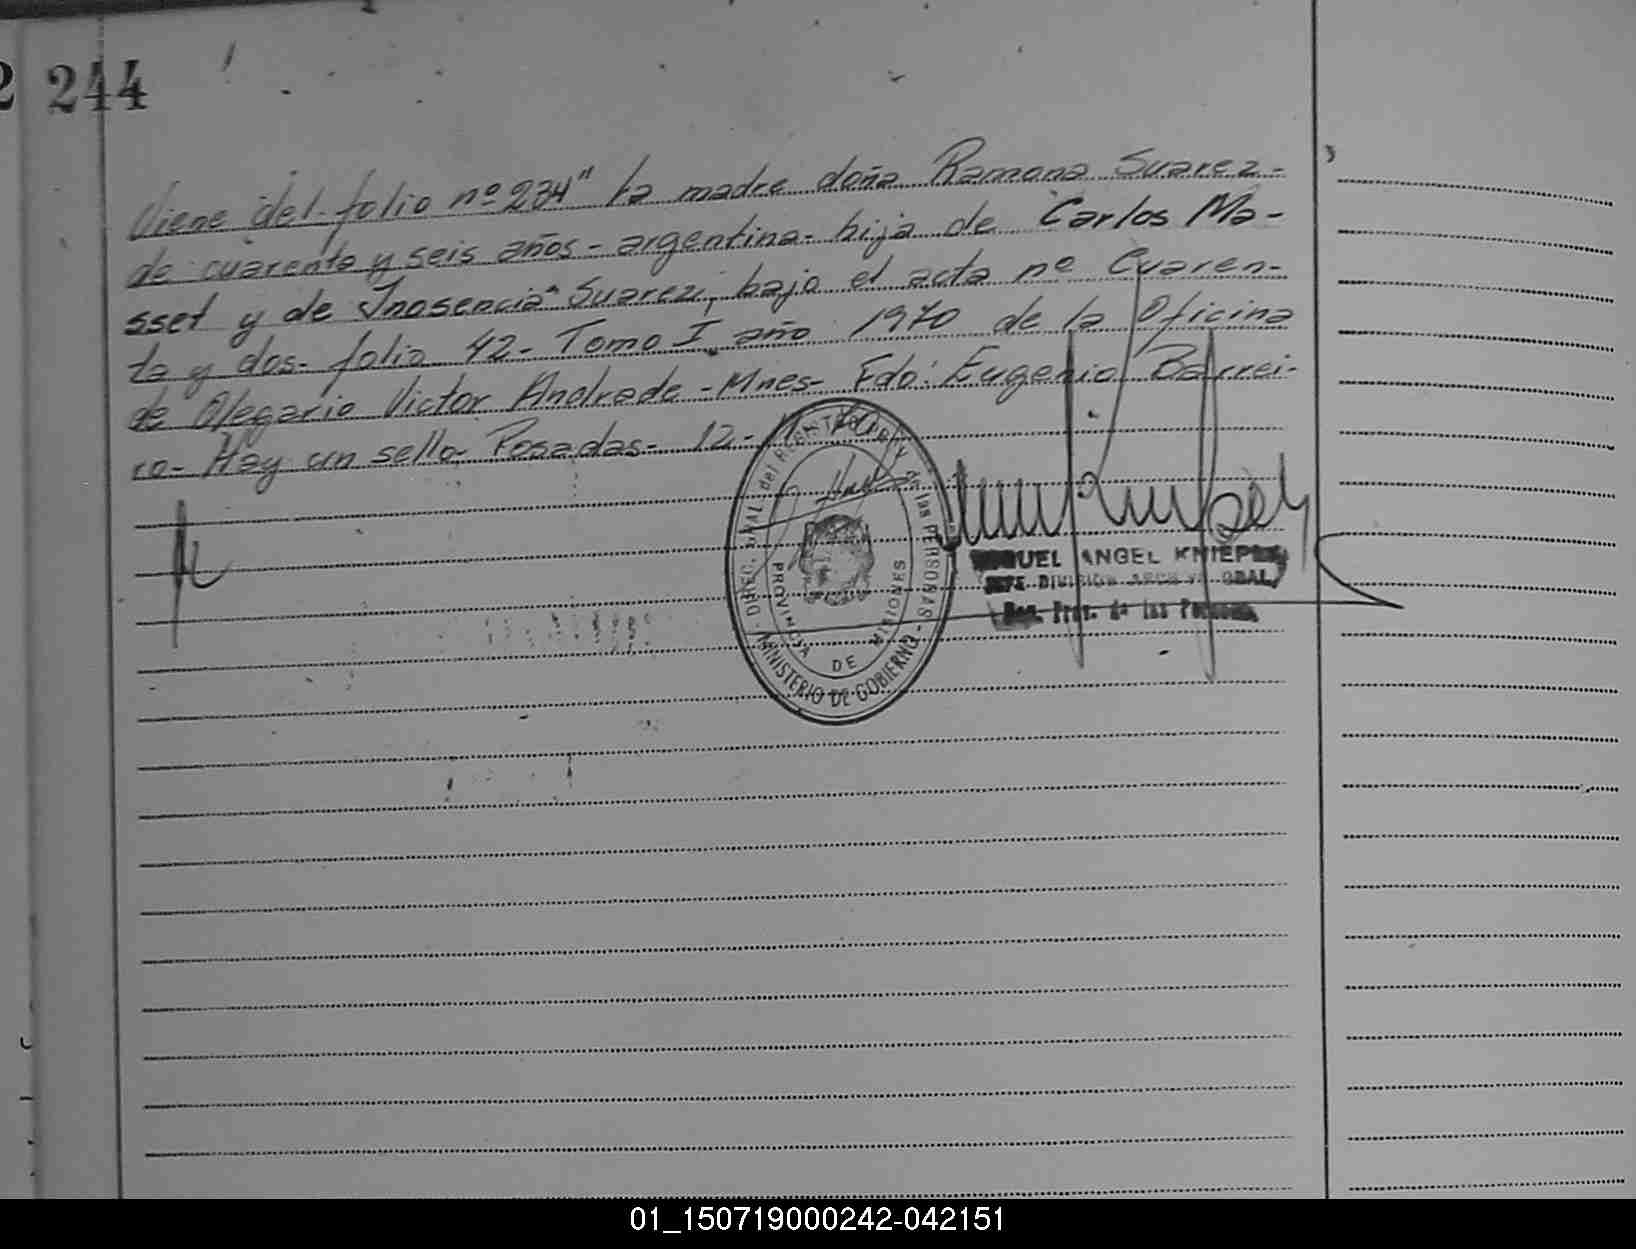 2 244
Viene del folio nº 234" la madre doña Ramona Suarez-
de cuarenta y seis años - argentina - hija de Carlos Ma-
sset y de Inosencia Suarez, bajo el acta nº Cuaren-
ta y dos - folio 42 - Tomo I año 1970 de la Oficina
de Olegario Victor Andrade - Mnes - Fdo: Eugenio Barrei-
ro - Hay un sello - Posadas - 12 -
DIREC. GRAL del de las PERSONAS
PROVINCIA DE MISIONES
MINISTERIO DE GOBIERNO
ANGEL
JEFE DIVISION
Reg. Prov. de las Personas
01_150719000242-042151